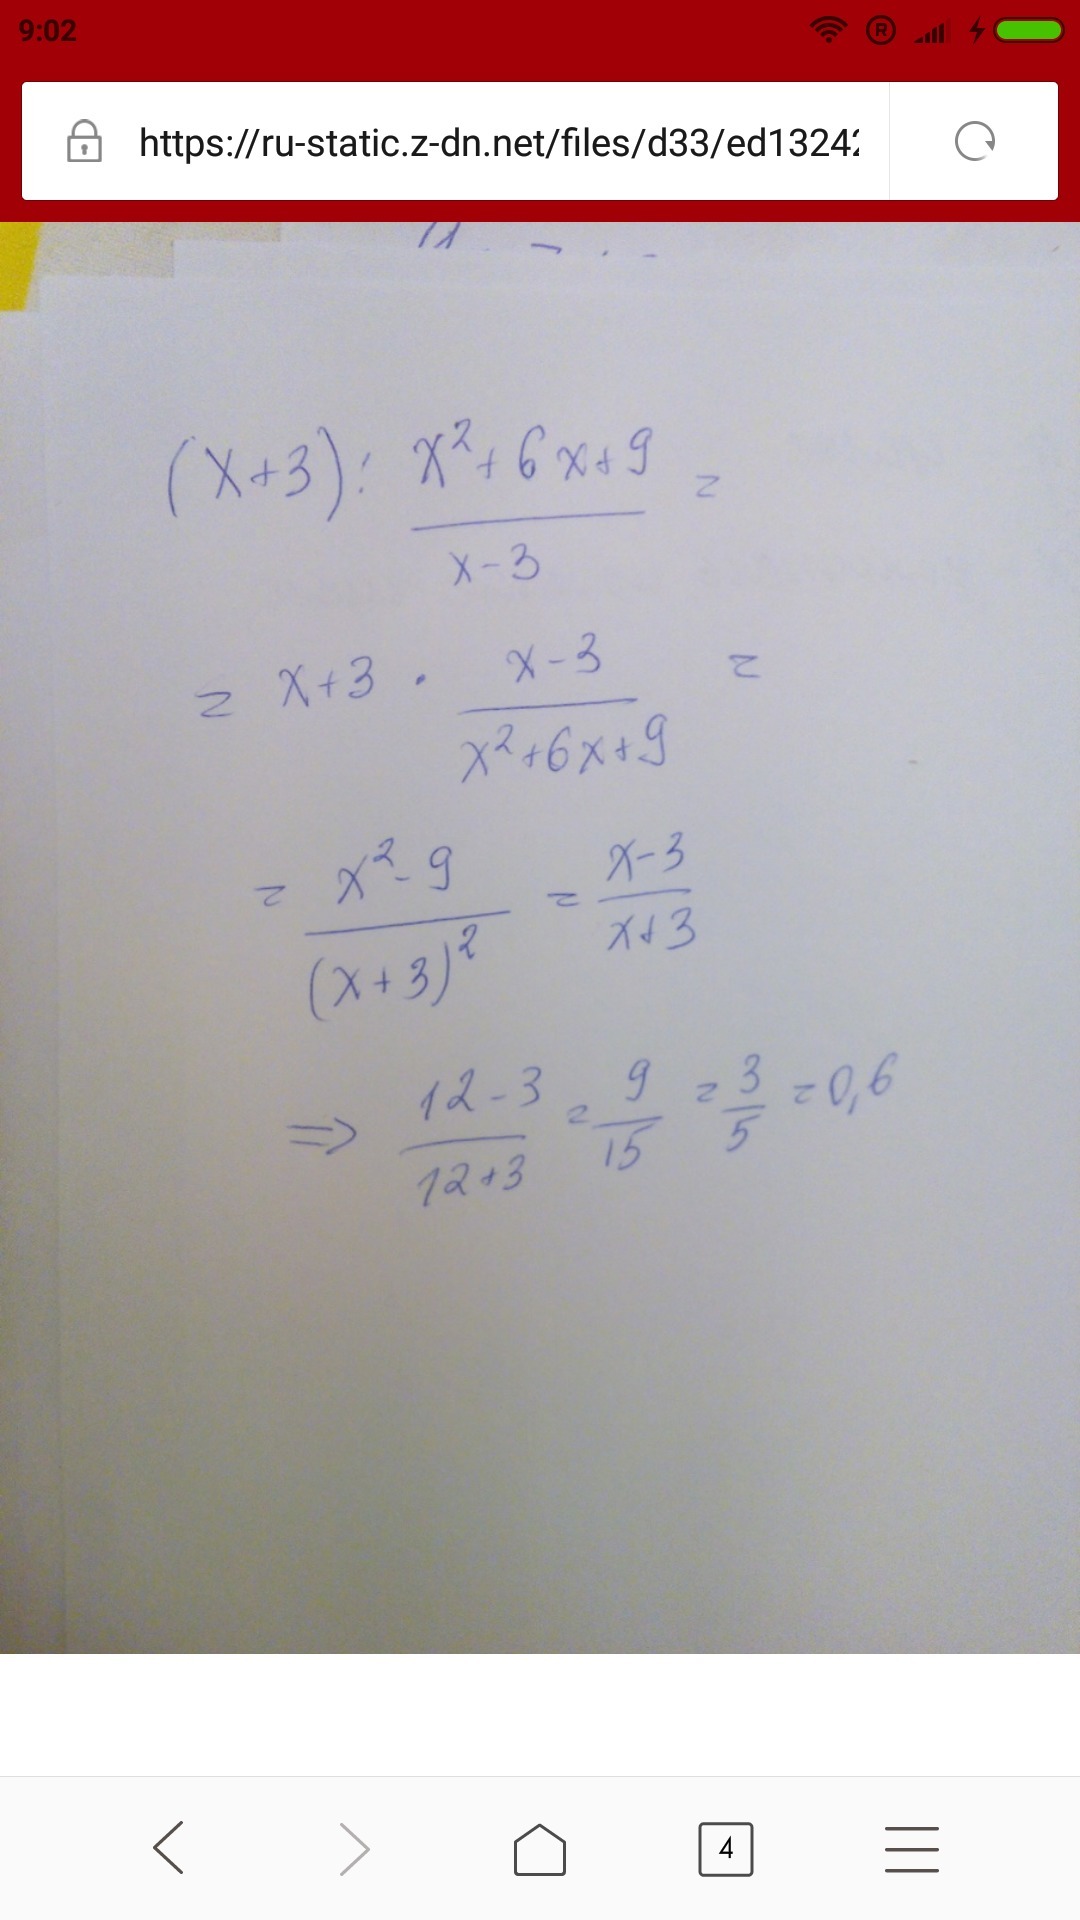 9:02
https://ru-static.z-dn.net/files/d33/ed13242
(x+3) : (x²+6x+9)/(x-3) =
= x+3 · (x-3)/(x²+6x+9) =
= (x²-9)/(x+3)² = (x-3)/(x+3)
=> (12-3)/(12+3) = 9/15 = 3/5 = 0,6
4